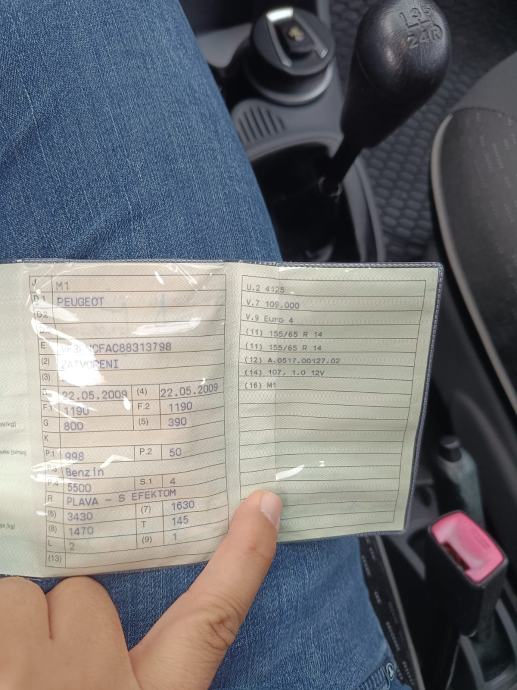 L 3 5
2 4 R
J M1
D.1 PEUGEOT
D.2
E CFAC88313798
(2) ZATVORENI
(3)
22.05.2009 (4) 22.05.2009
F.1 1190 F.2 1190
G 800 (5) 390
K
P.1 998 P.2 50
Benzin
5500 S.1 4
R PLAVA - S EFEKTOM
(6) 3430 (7) 1630
(8) 1470 T 145
L 2 (9) 1
(13)
U.2 4125
V.7 109,000
V.9 Euro 4
(11) 155/65 R 14
(11) 155/65 R 14
(12) A.0517.00127.02
(14) 107, 1.0 12V
(16) M1